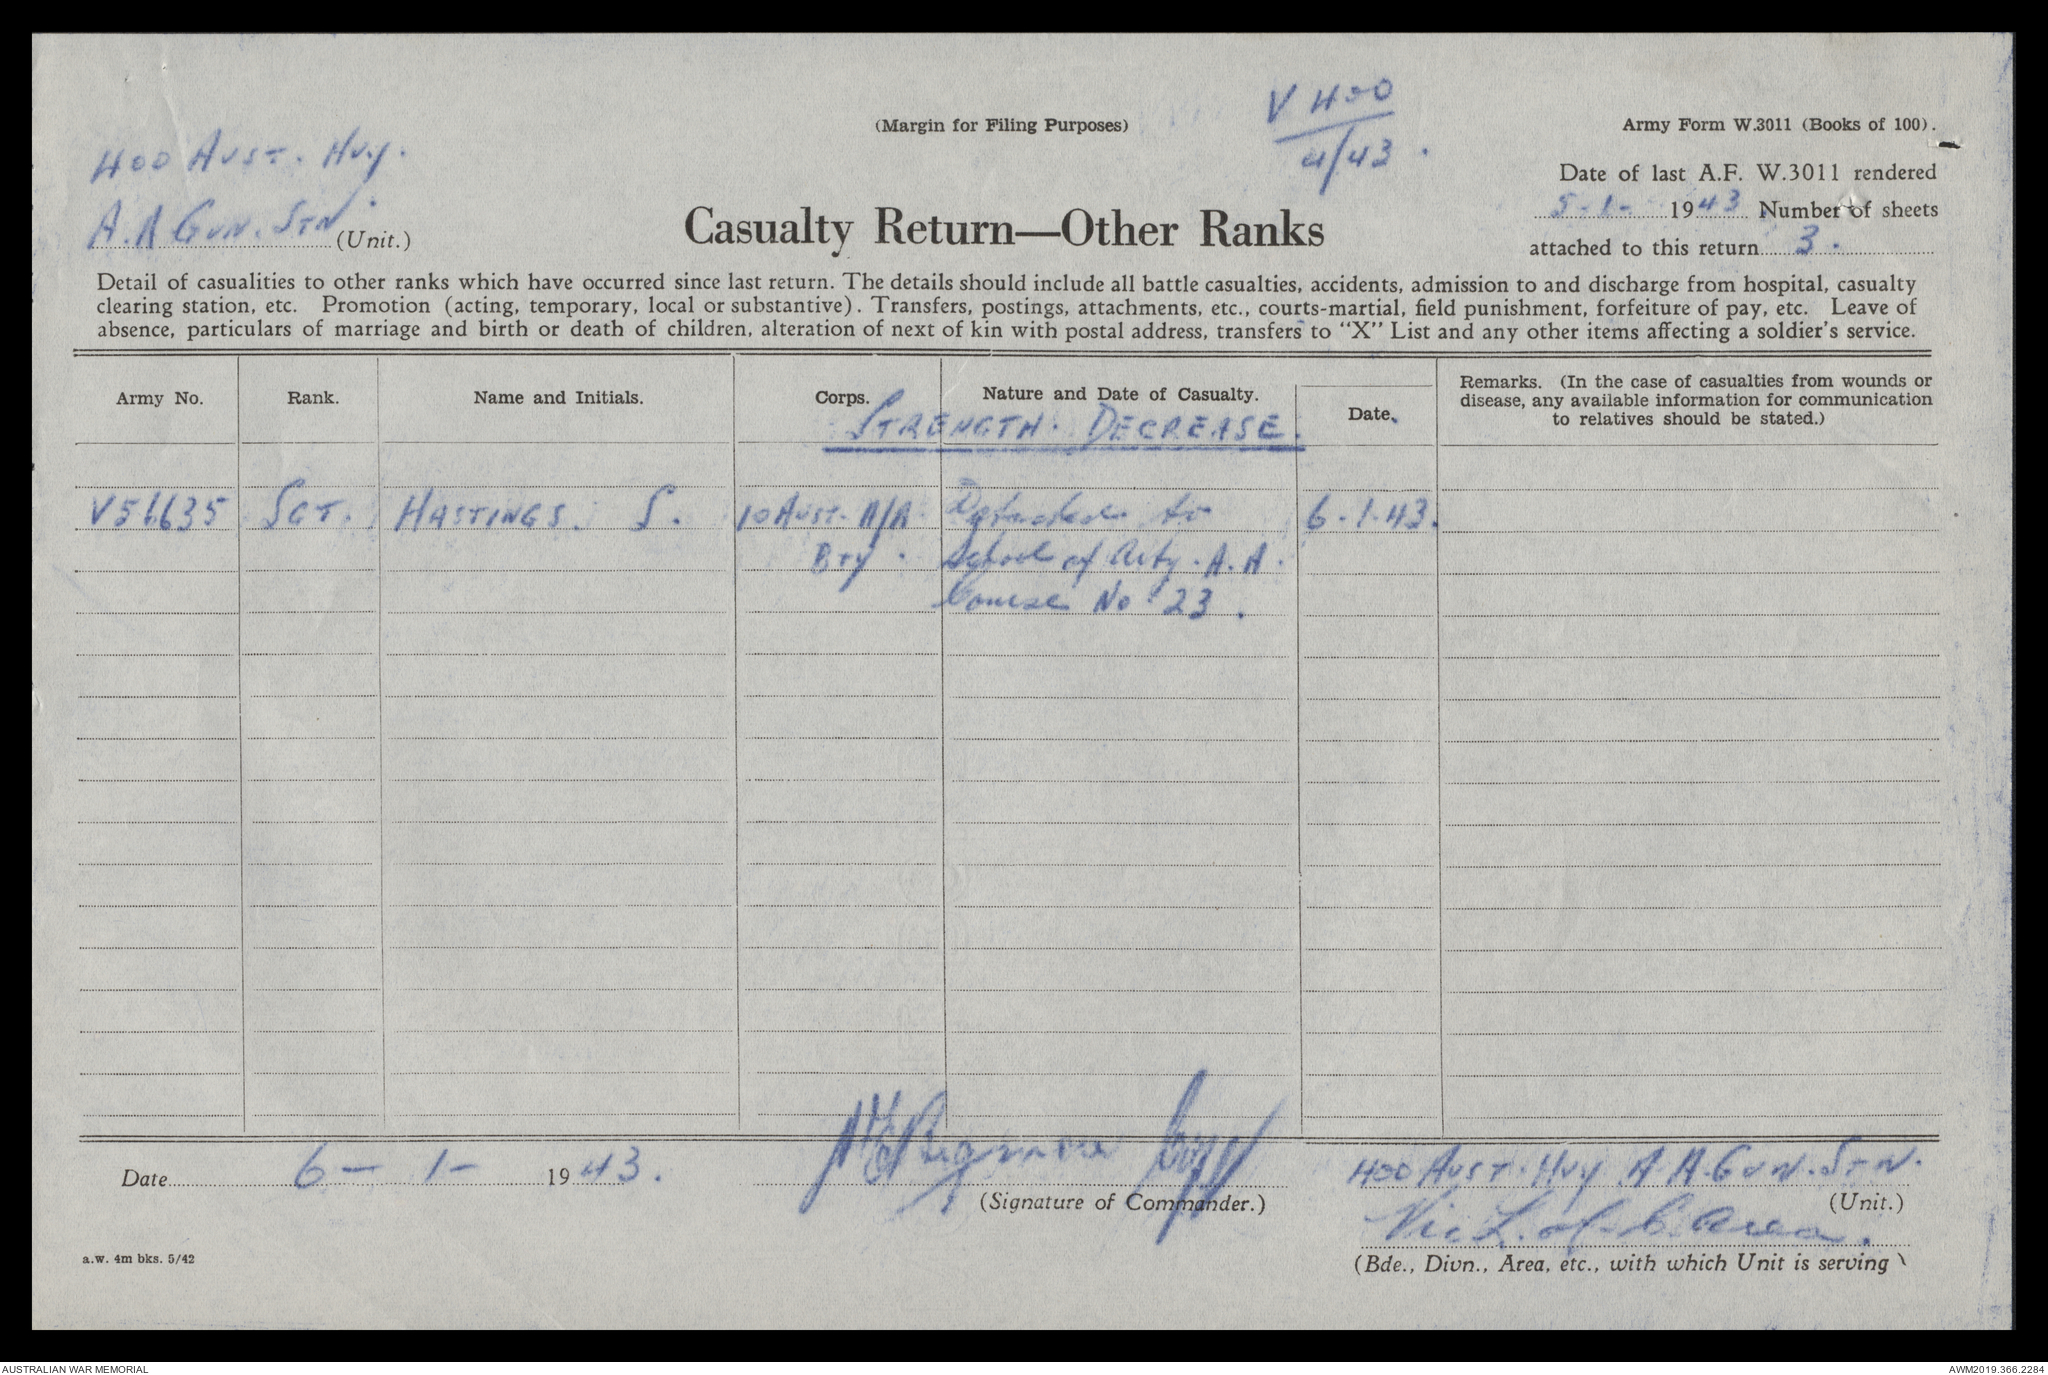 (Margin for Filing Purposes)
V 400
4/43.
Army Form W.3011 (Books of 100).
400 Aust. Hvy.
A.A Gun. Stn.
(Unit.)
Date of last A.F. W.3011 rendered
5-1- 1943 Number of sheets
attached to this return 3.
Casualty Return—Other Ranks
Detail of casualities to other ranks which have occurred since last return. The details should include all battle casualties, accidents, admission to and discharge from hospital, casualty
clearing station, etc. Promotion (acting, temporary, local or substantive). Transfers, postings, attachments, etc., courts-martial, field punishment, forfeiture of pay, etc. Leave of
absence, particulars of marriage and birth or death of children, alteration of next of kin with postal address, transfers to "X" List and any other items affecting a soldier's service.
Army No. Rank. Name and Initials. Corps. Nature and Date of Casualty. Date. Remarks. (In the case of casualties from wounds or
disease, any available information for communication
to relatives should be stated.)
STRENGTH. DECREASE.
V56635 SGT. HASTINGS. S. 10 Aust. A/A Detached to 6-1-43.
Bty. School of Arty. A.A.
Course No 23.
Date 6- 1- 1943.
(Signature of Commander.)
400 Aust. Hvy A.A. Gun. Stn.
(Unit.)
Vic L. of C. Area.
(Bde., Divn., Area, etc., with which Unit is serving
a.w. 4m bks. 5/42
AUSTRALIAN WAR MEMORIAL
AWM2019.366.2284